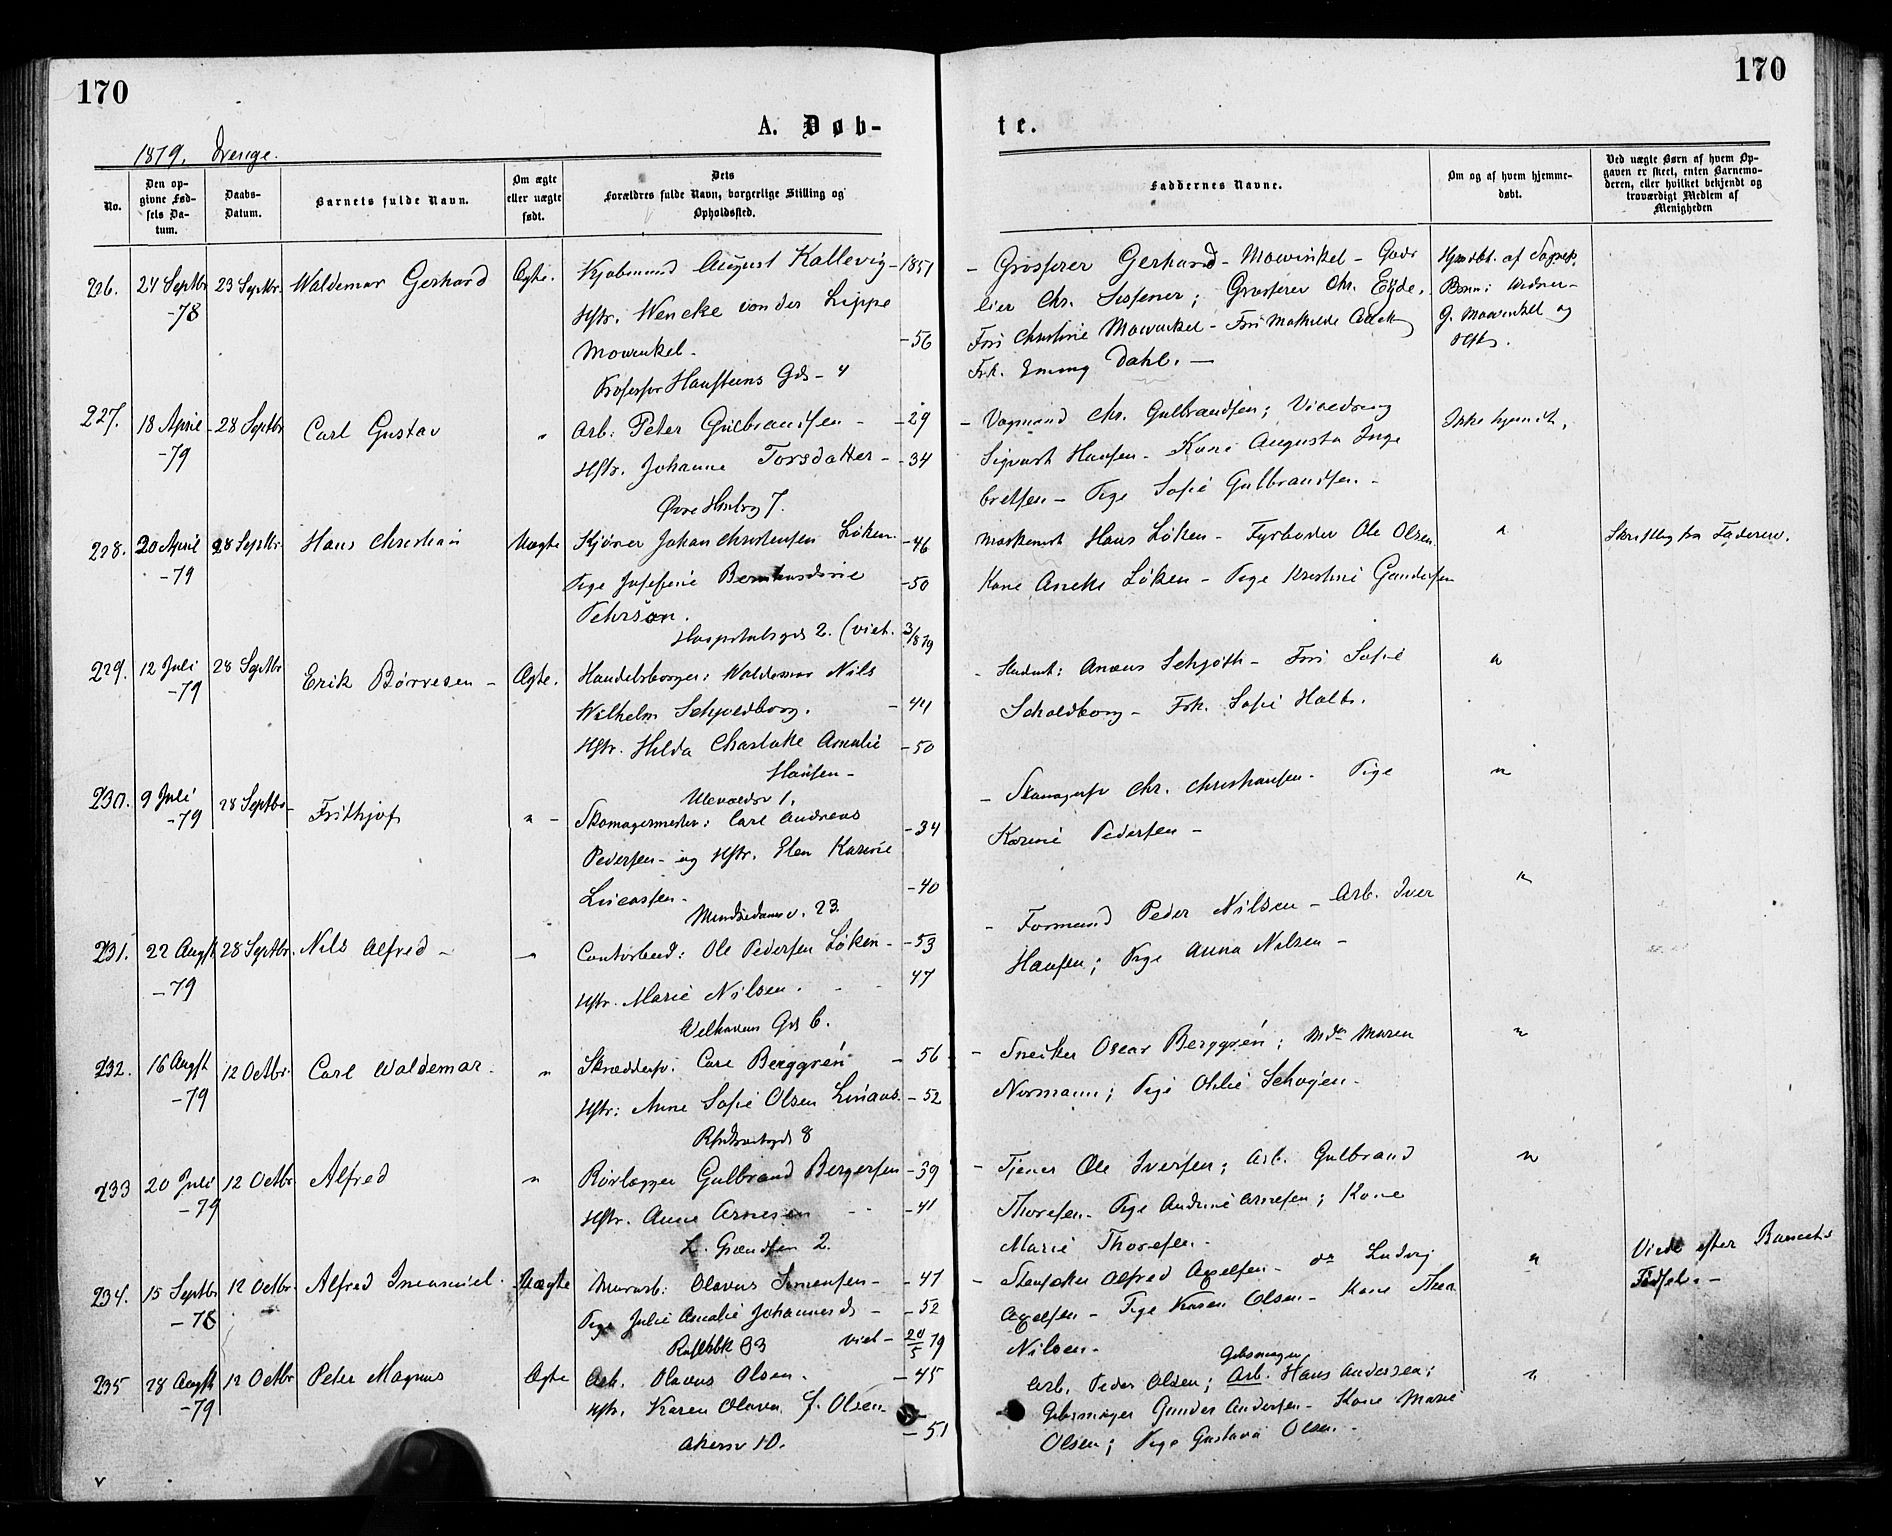 170
170
A. Døb-
te.
1879. Drenge.
No.
Den op-
givne Fød-
sels Da-
tum.
Daabs-
Datum.
Barnets fulde Navn.
Om ægte
eller uægte
født.
Dets
Forældres fulde Navn, borgerlige Stilling og
Opholdssted.
Faddernes Navne.
Om og af hvem hjemme-
døbt.
Ved uægte Børn af hvem Op-
gaven er skeet, enten Barnemo-
deren, eller hvilket bekjendt og
troværdigt Medlem af
Menigheden
226. 21 Septbr 23 Septbr. Waldemar Gerhard Ægte. Kjøbmand August Kallevig - 1851
-78 Hstr. Wencke von der Lippe
Mowinkel. - 56
Professor Hansteens Gd - 4
- Grosserer Gerhard Mowinkel -
Chr. ; Grosserer Chr. Eyde.
Christine Mowinkel - Mathilde
Frk. Emmy Dahl. -
Hjmdbt. af
G. Mowinkel og
227. 18 April 28 Septbr Carl Gustav " Arb: Peter Gulbrandsen - - 29
-79 Hstr. Johanne Torsdatter - - 34
7.
- Vognmand Chr. Gulbrandsen;
Sigvart Hansen - Kone Augusta Inge
bretsen - Pige Sofie Gulbrandsen. -
Ikke hjemdt.
228. 20 April 28 Septbr. Hans Christian Uægte Johan Christensen Løken. - 46
-79 Pige Josefine Bernhardine - 50
Pehrson.
Hospitalsgd 2. (viet. 3/8 79
Hans Løken - Fyrbøder Ole Olsen
Kone Løken - Pige Kristine Gundersen
"
Skriftlig fra Faderen.
229. 12 Juli 28 Septbr Erik Børresen - Ægte. Handelsborger: Waldemar Nils
-79 Wilhelm Schjoldborg. - 44
Hstr. Hilda Charlotte Amalie - 50
Hansen -
Ulevoldsv 1.
- Student: Schjøth - Sofie
Scholdborg - Frk. Sofie
"
230. 9 Juli 28 Septbr - Frithjof " - Skomagermester: Carl Andreas - 34
-79 Pedersen - og Hstr. Elen Karine
- 40
Munkedamsv. 23
- Skomagersv Chr. Christiansen - Pige
Karine Pedersen -
"
231. 22 Augst 28 Septbr. Nils Alfred - " Contorbud: Ole Pedersen Løken - - 53
-79 Hstr. Marie Nilsen. - - 47
Welhavens Gd 6.
- Formand Peder Nilsen - Arb. Iver
Hansen; Pige Anna Nilsen -
"
232. 16 Augst 12 Octbr. Carl Waldemar. " Skræddersv. Carl Berggrén - 56
-79 Hstr: Anne Sofie Olsen - 52
8
- Snedker Oscar Berggrén; Maren
Normann; Pige
"
233 20 Juli 12 Octbr Alfred " Rørlægger Gulbrand Bergersen - 39
-79 Hstr. Anne Arnesen - - - 41
L. Grændsen 2.
- Tjener Ole Iversen; Arb. Gulbrand
Thoresen - Pige Andrine Arnesen; Kone
Marie Thoresen -
"
234. 15 Septbr 12 Octbr. Alfred Imanuel. Uægte Murarb: Olavus Simensen - - 47
-78 Pige Julie Amalie Johannesd - - 52
viet - 24/5 79
- Alfred Axelsen - Ludvig
Axelsen - Pige Karen Olsen - Kone Thea
Nilsen -
"
Viede efter Barnets
Fødsel. -
235 28 Augst 12 Octbr Peter Magnus Ægte Arb. Olavus Olsen. - 45
-79 Hstr. Karen Olava f. Olsen - - 51
Akersv 10.
Gibsmager
Arb. Peder Olsen; Arb. Hans Andersen;
Gibsmager Gunder Andersen - Kone Marie
Olsen; Pige Gustava Olsen. -
"
v